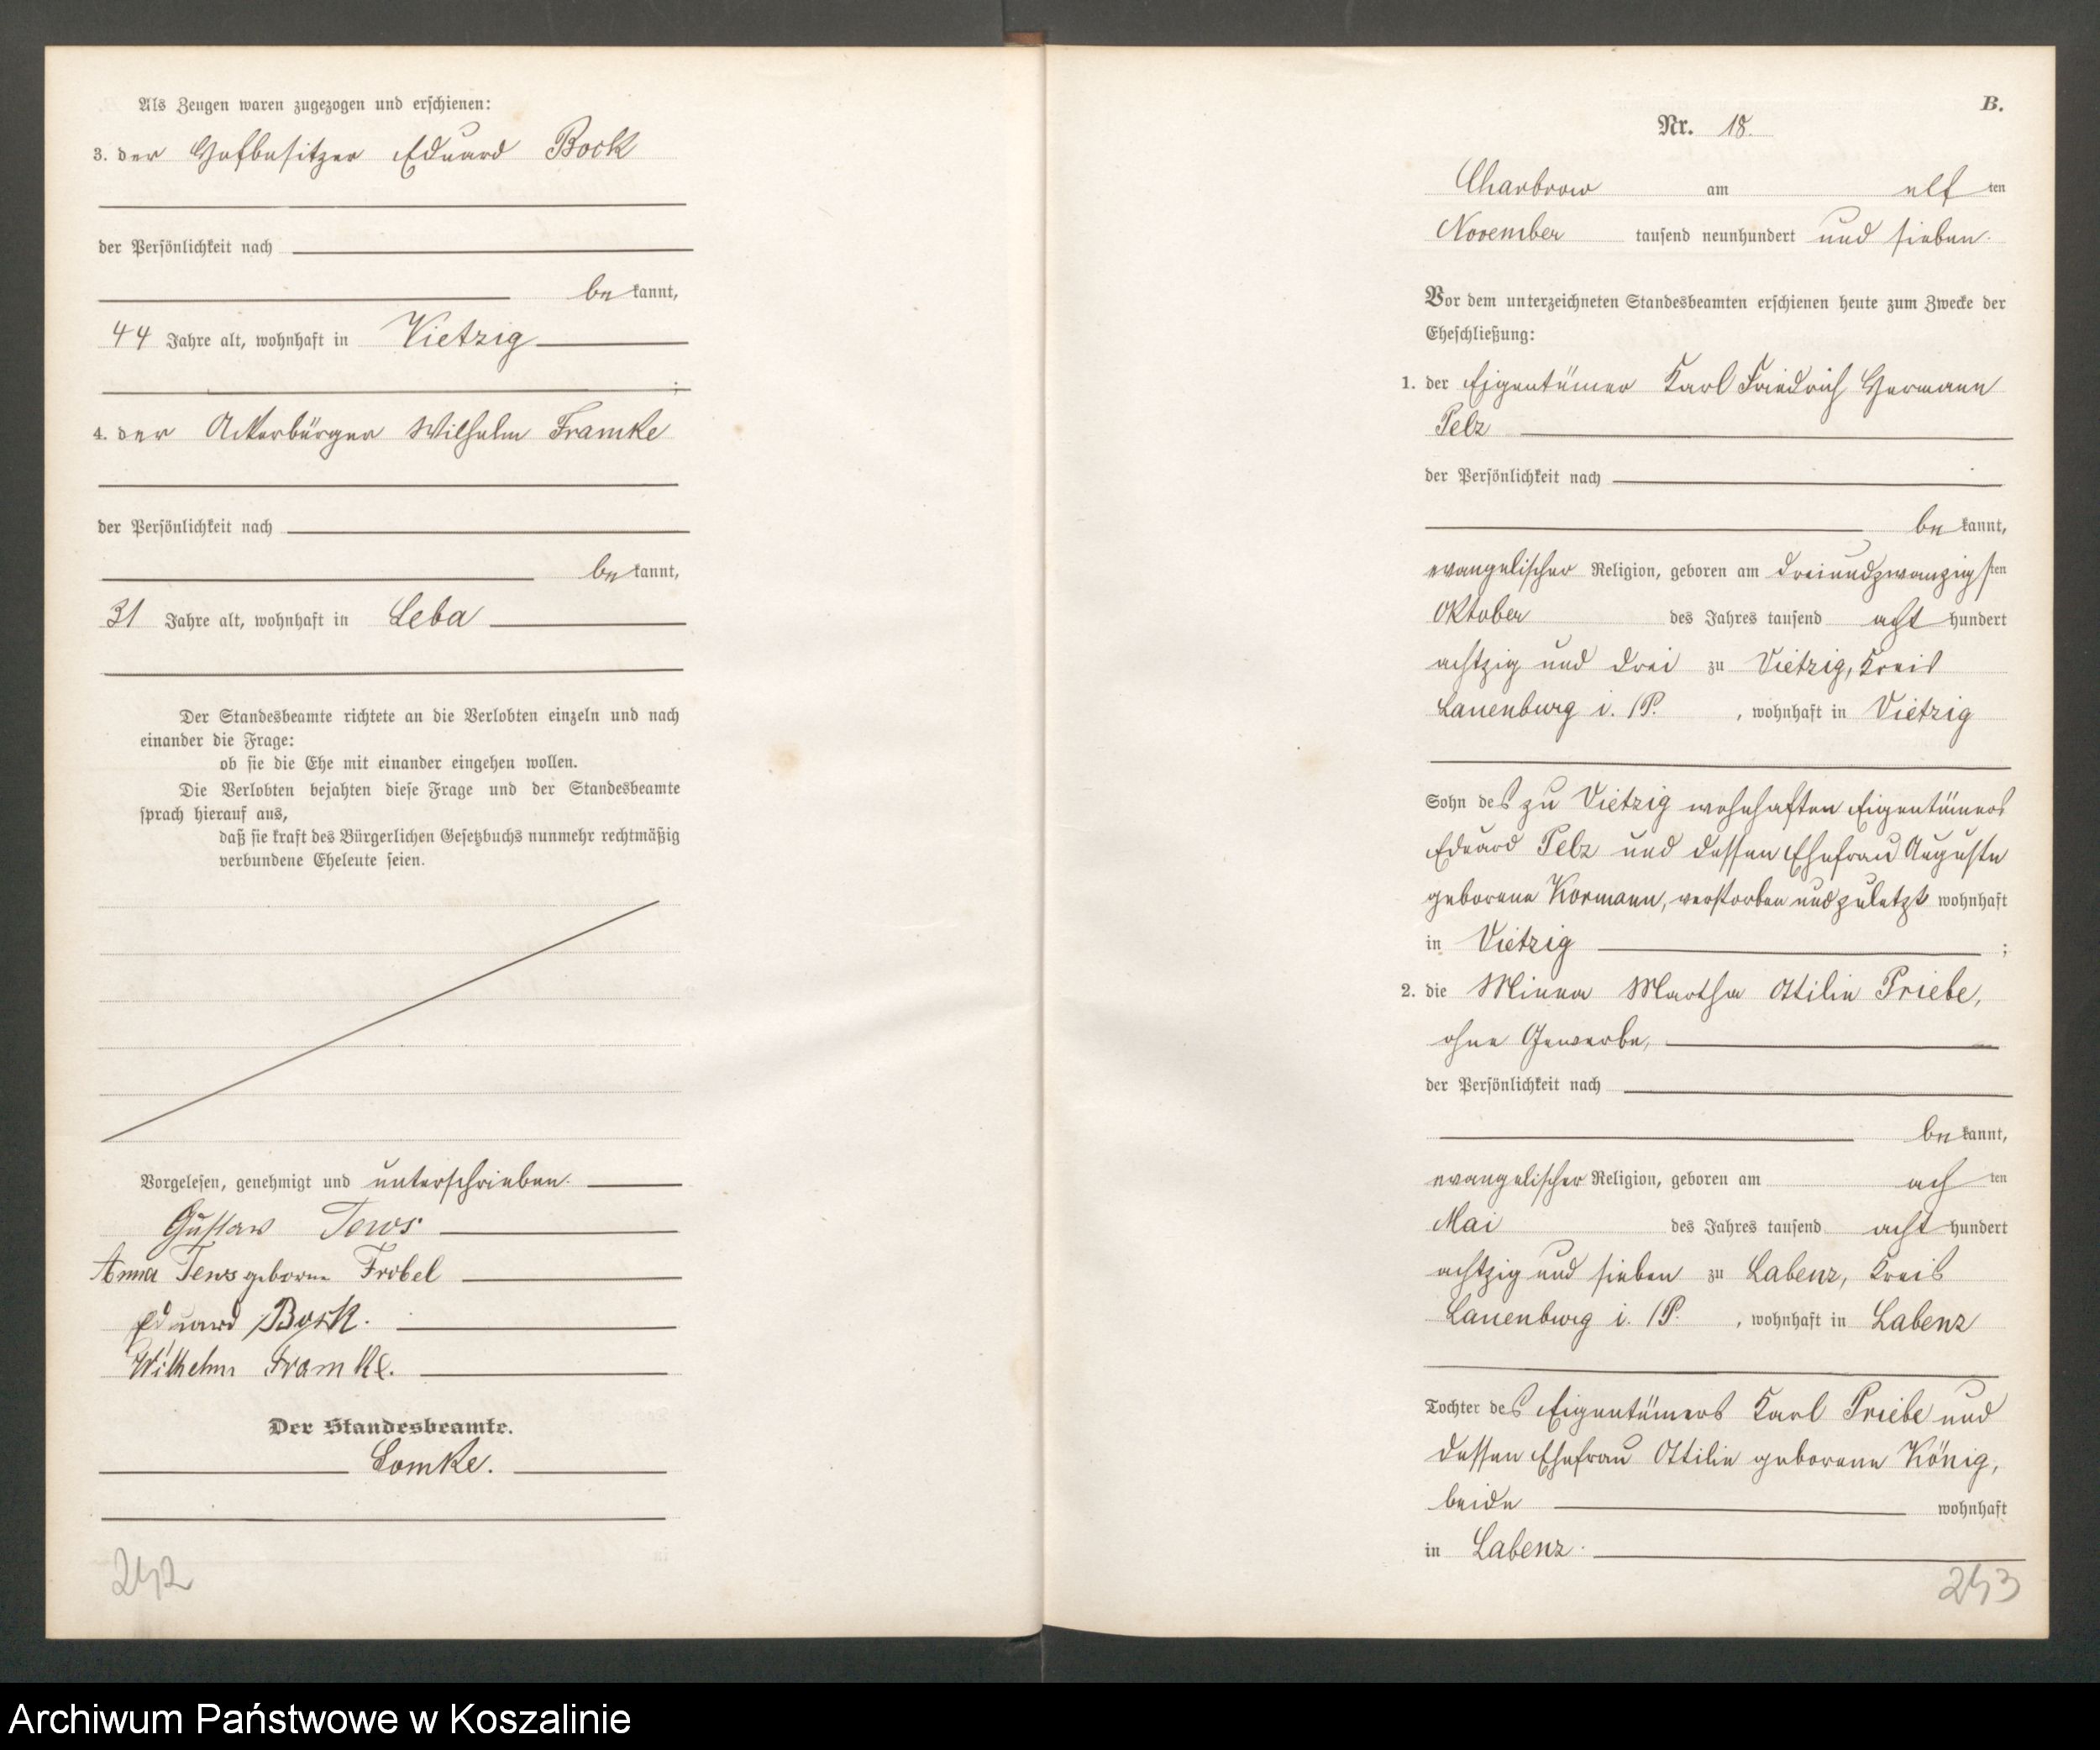 Als Zeugen waren zugezogen und erschienen:
3. der Hofbesitzer Eduard Bock
der Persönlichkeit nach
be kannt,
44 Jahre alt, wohnhaft in Vietzig
;
4. der Ackerbürger Wilhelm Framke
der Persönlichkeit nach
be kannt,
31 Jahre alt, wohnhaft in Leba
Der Standesbeamte richtete an die Verlobten einzeln und nach
einander die Frage:
ob sie die Ehe mit einander eingehen wollen.
Die Verlobten bejahten diese Frage und der Standesbeamte
sprach hierauf aus,
daß sie kraft des Bürgerlichen Gesetzbuchs nunmehr rechtmäßig
verbundene Eheleute seien.
Vorgelesen, genehmigt und unterschrieben.
Gustav Tews
Anna Tews geborne Frobel
Eduard Bock.
Wilhelm Framke.
Der Standesbeamte.
Lomke.
242
B.
Nr. 18.
Charbrow am elf ten
November tausend neunhundert und sieben.
Vor dem unterzeichneten Standesbeamten erschienen heute zum Zwecke der
Eheschließung:
1. der Eigentümer Karl Friedrich Hermann
Pelz
der Persönlichkeit nach
be kannt,
evangelischer Religion, geboren am dreiundzwanzigsten
Oktober des Jahres tausend acht hundert
achtzig und drei zu Vietzig, Kreis
Lauenburg i. P. , wohnhaft in Vietzig
Sohn des zu Vietzig wohnhaften Eigentümers
Eduard Pelz und dessen Ehefrau Auguste
geborene Kormann, verstorben und zuletzt wohnhaft
in Vietzig ;
2. die Minna Martha Ottilie Priebe,
ohne Gewerbe,
der Persönlichkeit nach
be kannt,
evangelischer Religion, geboren am ach ten
Mai des Jahres tausend acht hundert
achtzig und sieben zu Labenz, Kreis
Lauenburg i. P. , wohnhaft in Labenz
Tochter des Eigentümers Karl Priebe und
dessen Ehefrau Ottilie geborene König,
beide wohnhaft
in Labenz.
243
Archiwum Państwowe w Koszalinie